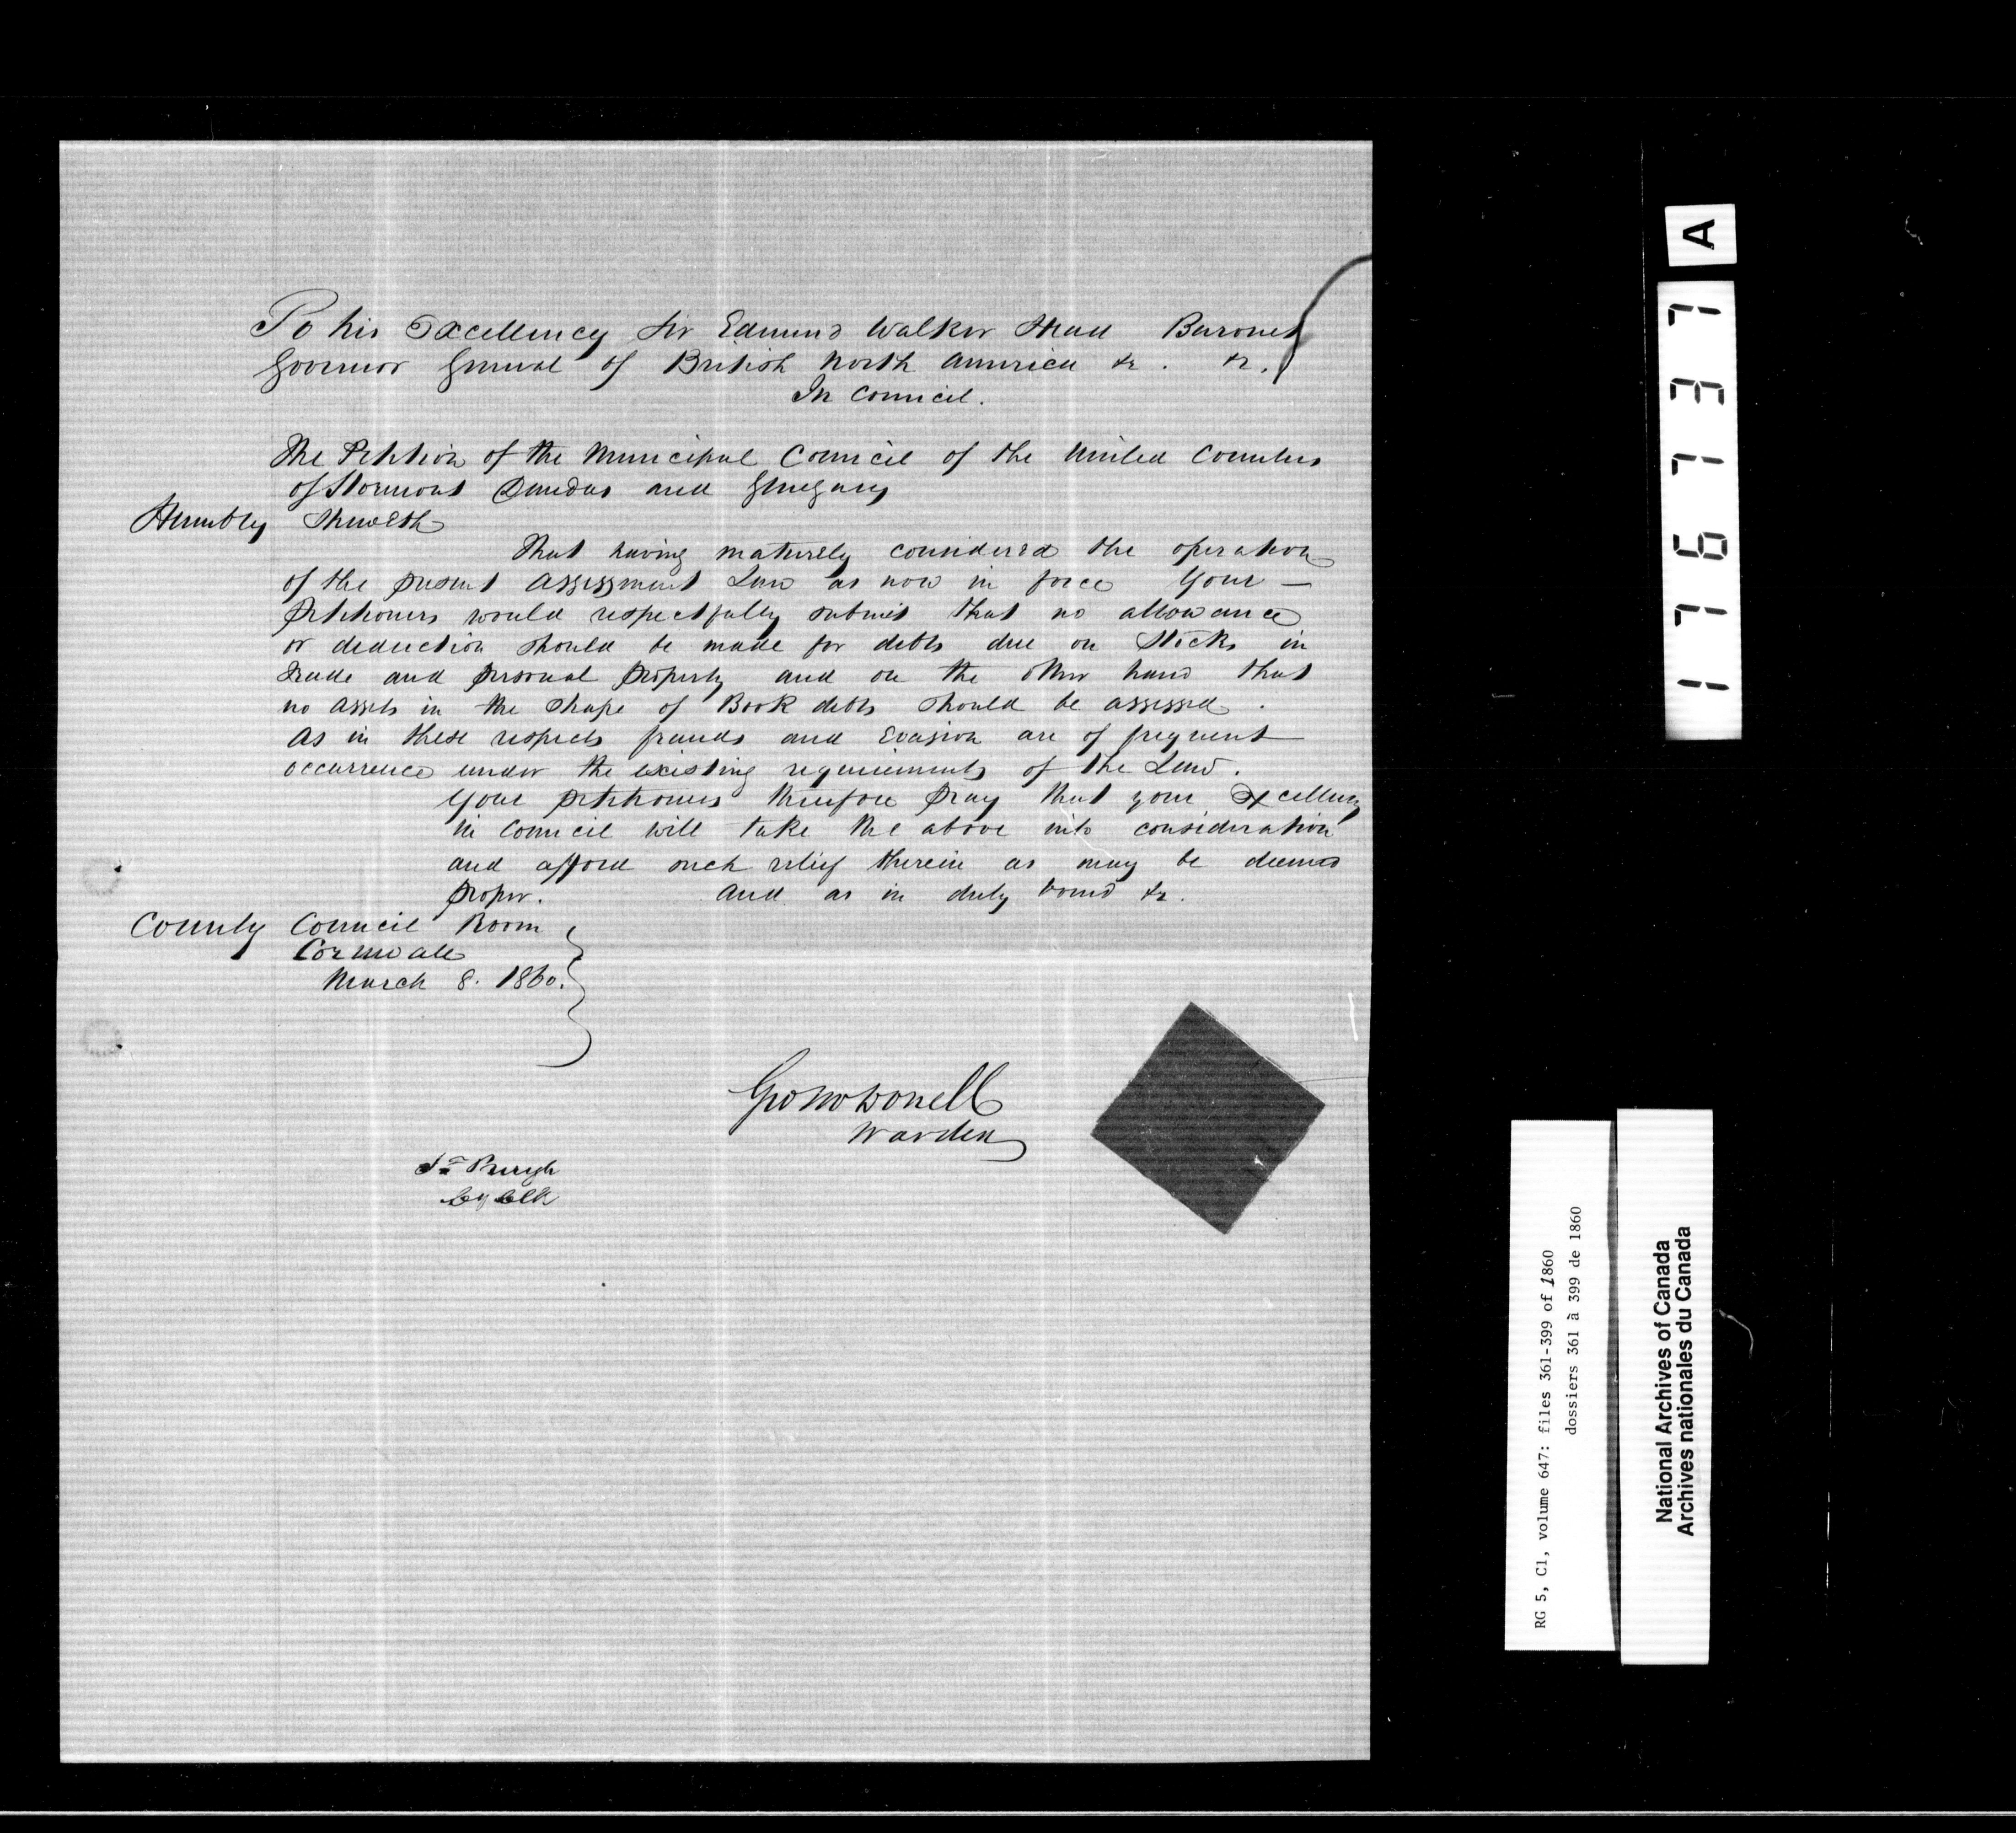 To his Excellency Sir Edmund Walker Head Baronet
Governor General of British North America &c. &c.
In Council.
The Petition of the Municipal Council of the United Counties
of Stormont Dundas and Glengary
Humbly Sheweth
That having maturely considered the operation
of the present Assessment Law as now in force Your —
Petitioners would respectfully submit that no allowance
or deduction should be made for debts due on Stocks in
Trade and personal Property and on the other hand that
no assets in the shape of Book debts should be assessed.
As in these respects frauds and Evasion are of frequent
occurrence under the existing requirements of the Law.
Your petitioners therefore Pray that your Excellency
in Council will take the above into consideration
and afford such relief therein as may be deemed
proper. And as in duly bound &c.
County Council Room
Cornwall
March 8. 1860.
Geo McDonell
Warden
Pringle
Cy Clk
A
176737
RG 5, C1, volume 647: files 361-399 of 1860
dossiers 361 à 399 de 1860
National Archives of Canada
Archives nationales du Canada